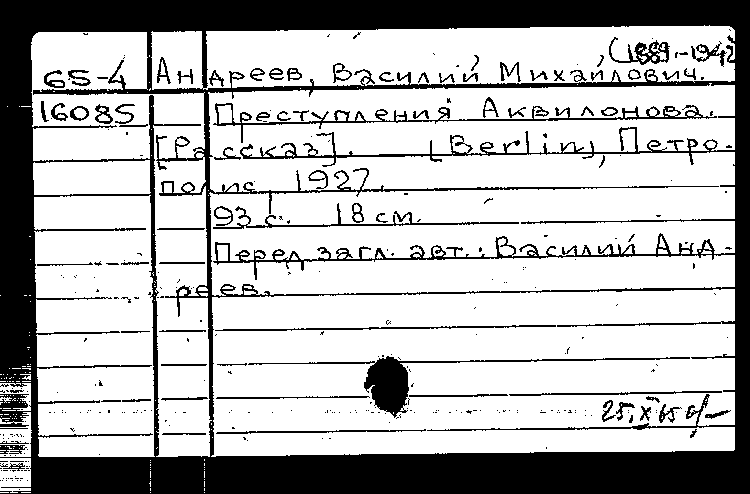 (1889-1942
65-4 Андреев, Василий Михайлович.
16085 Преступления Аквилонова.
[Рассказ]. [Berlin], Петро-
полис, 1927.
93 с. 18 см.
Перед загл. авт.: Василий Анд-
реев.
25.X 65